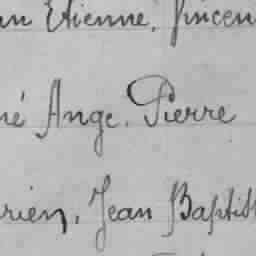 Etienne, Vincen
né Ange. Pierre
rien, Jean Baptist